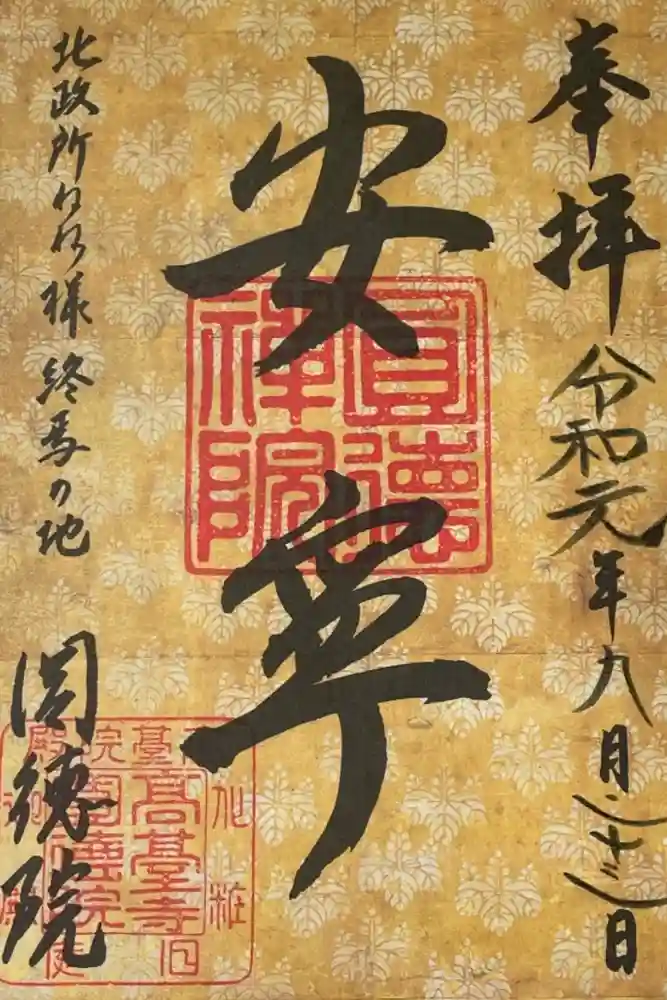 奉拝
令和元年九月二十三日
安寧
圓德禅院
北政所ねね様終焉の地
圓徳院
高臺寺
圓德院
化粧